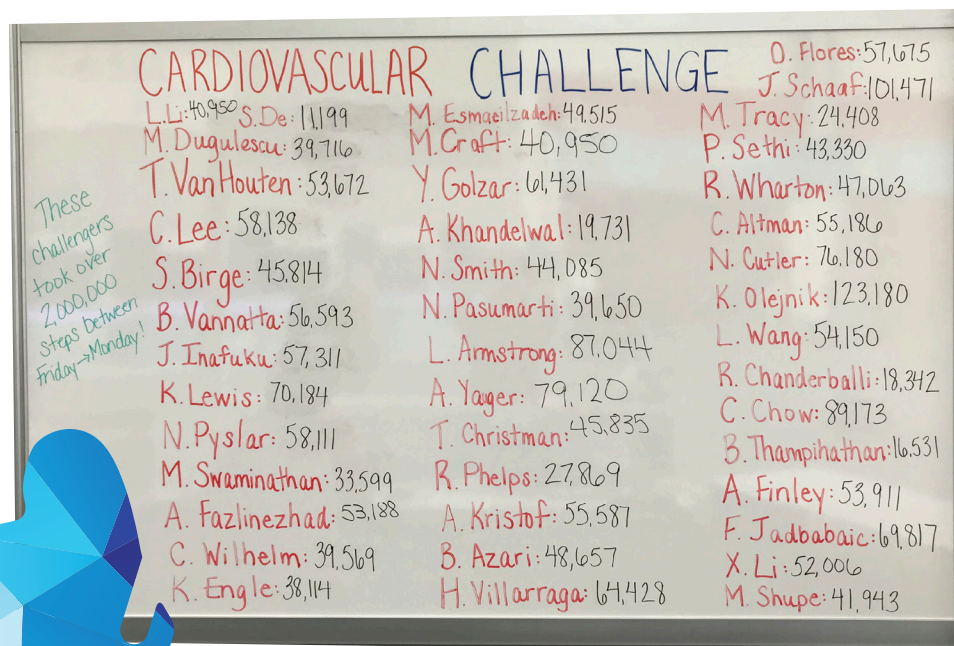 CARDIOVASCULAR CHALLENGE
These
challengers
took over
2,000,000
steps between
Friday→Monday!
L.Li:40,950 S.De: 11,199
M.Dugulescu: 39,716
T.VanHouten: 53,672
C.Lee: 58,138
S.Birge: 45,814
B.Vannatta: 56,593
J.Inafuku: 57,311
K.Lewis: 70,184
N.Pyslar: 58,111
M.Swaminathan: 33,599
A. Fazlinezhad: 53,188
C. Wilhelm: 39,569
K. Engle: 38,114
M. Esmaeilzadeh: 49,515
M.Craft: 40,950
Y. Golzar: 61,431
A. Khandelwal: 19,731
N. Smith: 44,085
N. Pasumarti: 39,650
L. Armstrong: 87,044
A. Yager: 79,120
T. Christman: 45,835
R. Phelps: 27,869
A. Kristof: 55,587
B. Azari: 48,657
H. Villarraga: 64,428
O. Flores: 57,675
J. Schaaf: 101,471
M. Tracy: 24,408
P. Sethi: 43,330
R. Wharton: 47,063
C. Altman: 55,186
N. Cutler: 76,180
K. Olejnik: 123,180
L. Wang: 54,150
R. Chanderballi: 18,342
C. Chow: 89,173
B. Thampihathan: 16,531
A. Finley: 53,911
F. Jadbabaic: 69,817
X. Li: 52,006
M. Shupe: 41,943